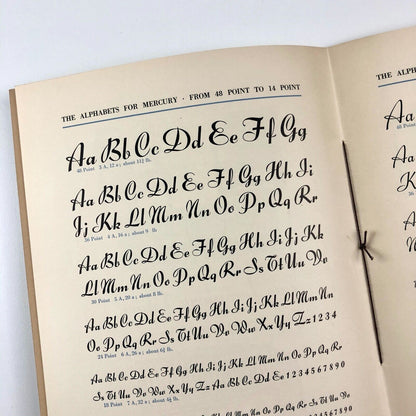 THE ALPHABETS FOR MERCURY · FROM 48 POINT TO 14 POINT
Aa Bb Cc Dd Ee Ff Gg
48 Point 3 A, 12 a; about 11½ lb.
Aa Bb Cc Dd Ee Ff Gg Hh Ii
Jj Kk Ll Mm Nn Oo Pp Qq Rr
36 Point 4 A, 16 a; about 9 lb.
Aa Bb Cc Dd Ee Ff Gg Hh Ii Jj Kk
Ll Mm Nn Oo Pp Qq Rr Ss Tt Uu Vv
30 Point 5 A, 20 a; about 8 lb.
Aa Bb Cc Dd Ee Ff Gg Hh Ii Jj Kk Ll Mm Nn
Oo Pp Qq Rr Ss Tt Uu Vv Ww Xx Yy Zz 1 2 3 4
24 Point 6 A, 26 a; about 6½ lb.
Aa Bb Cc Dd Ee Ff Gg Hh Ii Jj Kk Ll Mm Nn Oo Pp Qq Rr
Ss Tt Uu Vv Ww Xx Yy Zz 1 2 3 4 5 6 7 8 9 0
18 Point 7 A, 32 a; about
THE ALPHA
Aa
48 Point